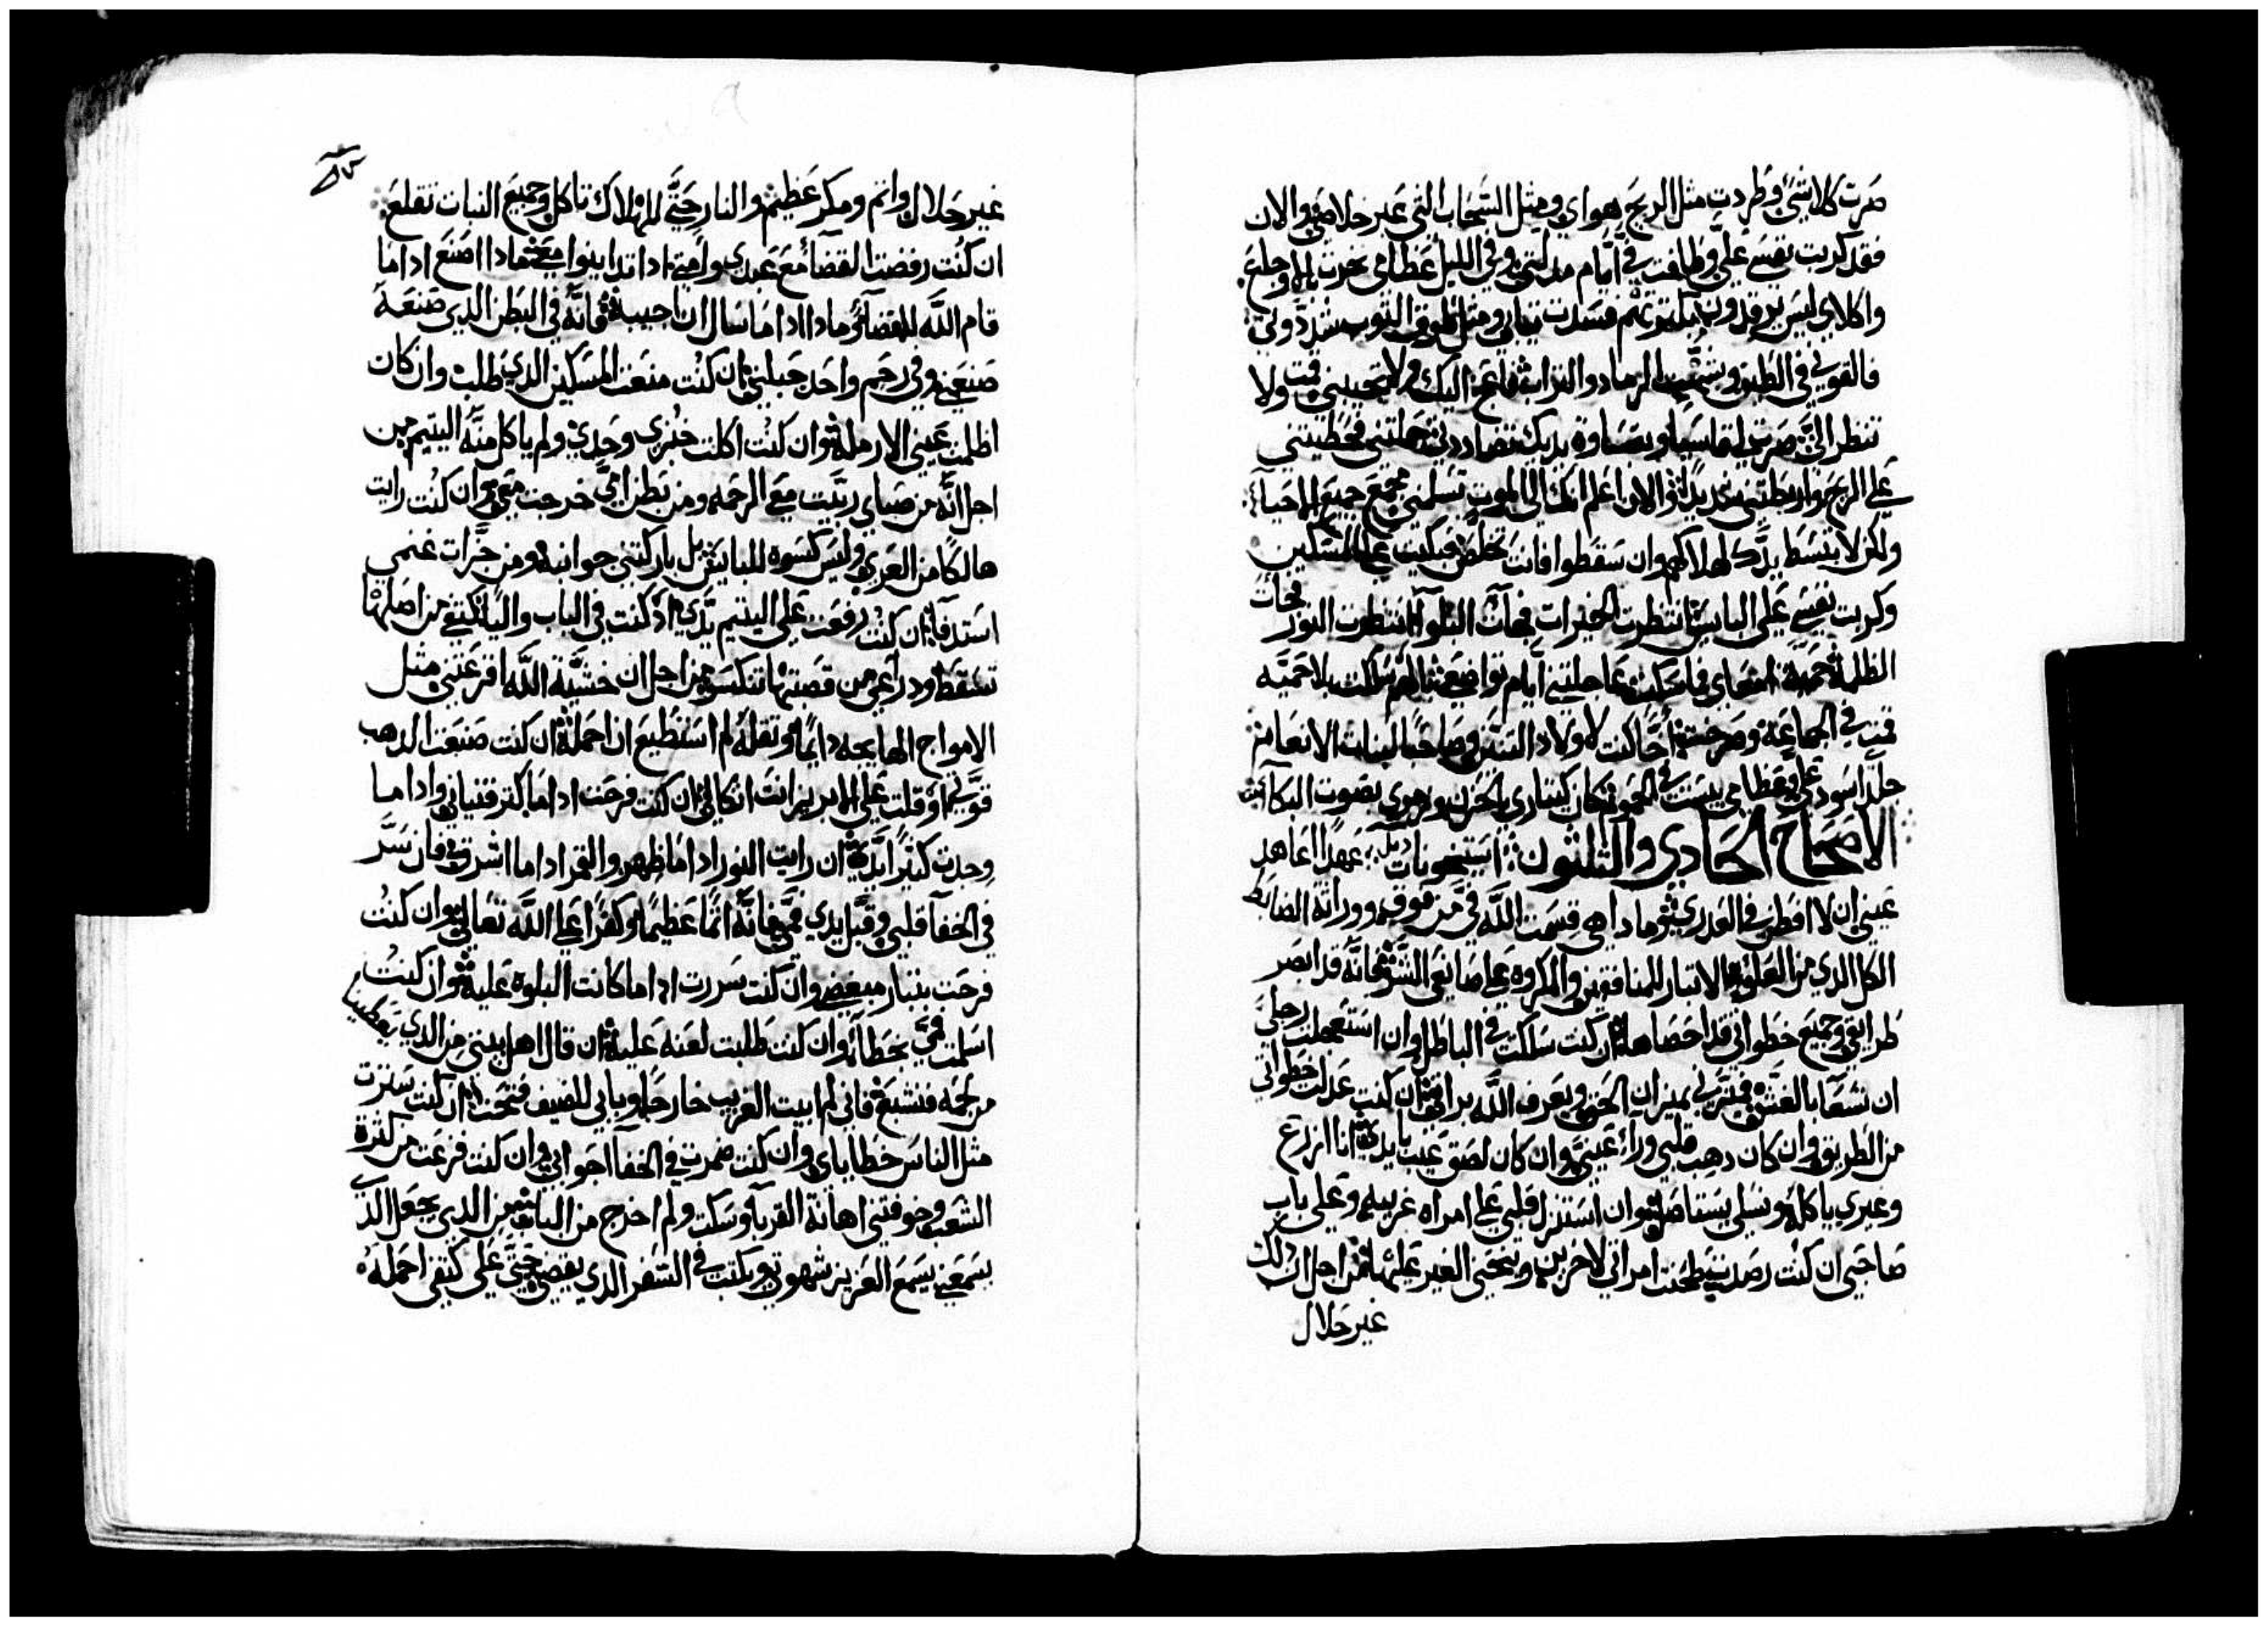 صرت كلاشي وطردت مثل الريح هواي ومثل السحاب التي عبر خلاصي والان
فقد كربت نفسي علي وظابفت في ايام مدلتي وفي الليل عظامي نخرت بالاوجاع
واكلاي ليس يرقدون فسدت تيابي ومثل طوق التوب شددوني
فالقوني في الطين وشبهت الرماد والتراب اعج اليك ولا تجيبني قمت ولا
تنظر الي صرت لي قاسيا وبقساوة يديك تضاددني حملتني فحطيتني
علي الريح واربطتني والان اعلم انك الي الموت تسلمني مجمع جميع الاحيا
ولكن لا تبسط يدك لهلاكهم وان سقطوا فانت تخلص فبكيت علي المسكين
وكربت نفسي علي البايس انتظرت الخيرات فجات البلوا انتظرت النور فجات
الظلمة امعاي فما سكنت عاجلتني ايام تواضعي سلكت بلا حميه
قمت في الجماعة وصرخت اخا كنت لاولاد التنين وصاحبا لبنات الانعام
جلدي اسود علي وعظامي يبست في الحمو فكان كيتاري بالحزن ومزموري بصوت البكآ
الاصحاح الحادي والتلثون استيخونات دبل عهدا اعاهد
عيني ان لا افطن في العدري وما دا هي قسمت الله في من فوق ووراتة الضابط
الكل الدي من العلو الا تبار للمنافقين والمكروه علي صانعي الشر فانه قد ابصر
طرايقي وجميع خطواتي قد احصاها ان كنت سلكت في الباطل وان استعجلت رجلي
ان تسعا بالغش فتزني بميزان الحق ويعرف الله براتي ان كنت عدلت خطواتي
من الطريق وان كان دهب قلبي ورآء عيني وان كان لصق عيب بايدي انا ازرع
وغيري ياكله ونسلي يستاصل وان استنزل قلبي علي امراه غريبه وعلي باب
صاحبي ان كنت رصدت تطحنت امراتي لاخرين وينحني الغير عليها من اجل ان دلك
غير حلال
غير حلال واتم ومكر عظيم والنار حتي للهلاك تاكل وجميع النبات تقلع
ان كنت رفضت القضآ مع عبدي وامتي ادا تداينوا معي مادا اصنع ادا ما
قام الله للقضآ ومادا ادا ما سال ان اجيبة فانه في البطن الدي صنعه
صنعني وفي رحم واحد جبلني ان كنت منعت المسكين الدي طلب وان كان
اظلمت عيني الارملة وان كنت اكلت خبزي وحدي ولم ياكل منه اليتيم من
اجل انه من صباي ربيت مع الرحمه ومن بطن امي خرجت معي وان كنت رايت
هالكا من العري وليس كسوه للبايس بل باركتني جوانبه ومن جزات غنمي
استدفا ان كنت رفعت علي اليتيم يدي اد كنت في الباب واليا كتفي من اصلها
تسقط ودراعي من قصبتها تنكسر من اجل ان خشية الله افزعتني مثل
الامواج الهايجه دايما وتقله لم استطيع ان احمله ان كنت صنعت الدهب
قوتي او قلت علي الابريز انت اتكالي ان كنت فرحت ادا ما كتر قنياني وادا ما
وجدت كتيرا يدي ان رايت النور ادا ما ظهر والقمر ادا ما اشرق فان سر
في الخفآ قلبي وقبل يدي فمي فانه اتما عظيما وكفرا علي الله تعالي وان كنت
فرحت بتبار مبغضي وان كنت سررت ادا ما كانت البلوه علية وان كنت
اسلمت فمي بخطآء وان كنت طلبت لعنه علية ان قال اهل بيتي من الدي يعطينا
من لحمه فنشبع فاني لم ابيت الغريب خارجا وبابي للضيف فتحت ان كنت سترت
مثل الناس خطاياي وان كنت ضمرت في الخفآ اجوابي وان كنت فزعت من كترة
الشعب وخوفتني اهانة القربآ وسكت ولم اخرج من الباب من الدي يجعل الدي
يسمعني يسمع العزيز شهوتي ويكتب في السفر الدي يقضي حتي علي كتفي احمله